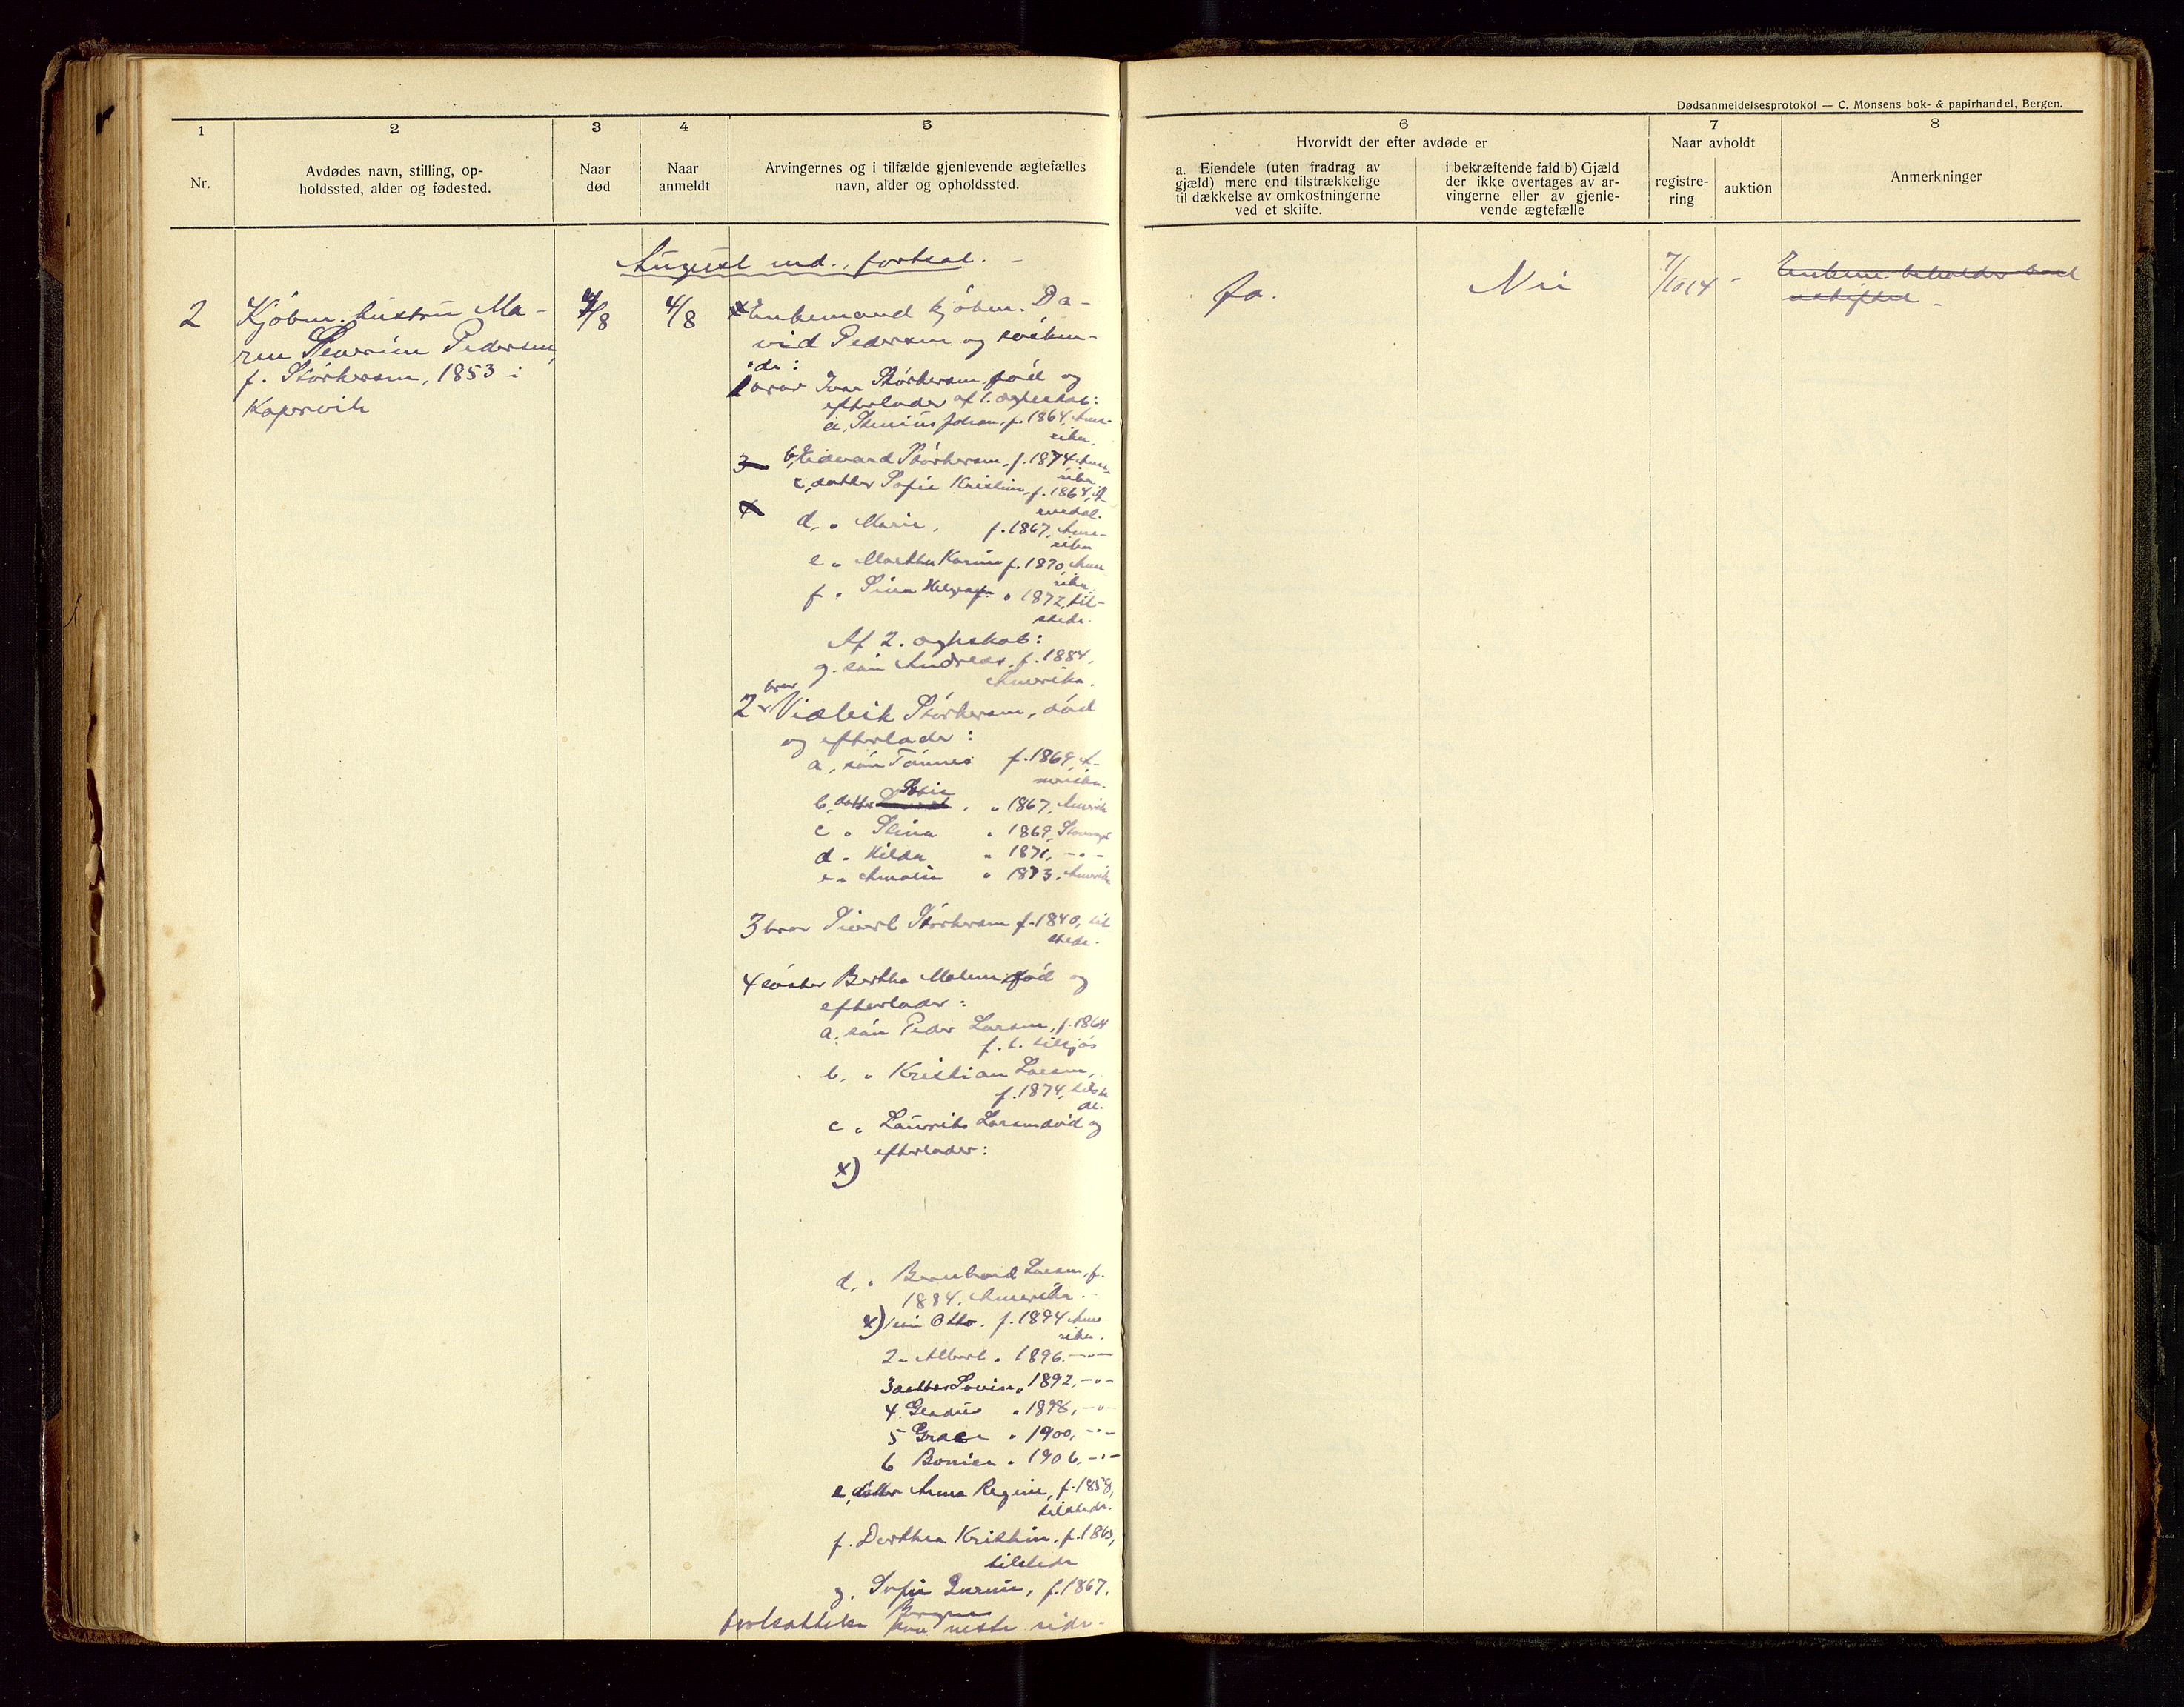 Dødsanmeldelsesprotokol — C. Monsens bok- & papirhandel, Bergen.
1
Nr.
2
Avdødes navn, stilling, op-
holdssted, alder og fødested.
3
Naar
død
4
Naar
anmeldt
5
Arvingernes og i tilfælde gjenlevende ægtefælles
navn, alder og opholdssted.
6
Hvorvidt der efter avdøde er
a. Eiendele (uten fradrag av
gjæld) mere end tilstrækkelige
til dækkelse av omkostningerne
ved et skifte.
i bekræftende fald b) Gjæld
der ikke overtages av ar-
vingerne eller av gjenle-
vende ægtefælle
7
Naar avholdt
registre-
ring
auktion
8
Anmerkninger
August md., fortsat. -
2
Kjöbm. hustru Ma-
ren Severine Pedersen,
f. Störkersen, 1853 i
Kopervik
4/8
4/8
x Enkemand kjöbm. Da-
vid Pedersen og
1 bror Ivar Störkersen, död og
efterlader af 1. ægteskab:
a, Johan, f. 1864, Ame-
rika.
3 b, Edvard Störkersen, f. 1874, Ame-
rika
c, datter Sofie Kristine, f. 1864,
x
d, " Marie, f. 1867, Ame-
rika
e " Martha Karine f. 1870, Ame
rika.
f " Sina Helga " 1872, til-
stede.
Af 2. ægteskab:
g. sön Andreas, f. 1884,
Amerika.
bror
2 Störkersen, död
og efterlader:
a, sön Tönnes f. 1864, A-
merika.
Sofie
b, datter " 1867, Amerika
c " Stina " 1869, Stavanger
d " Hilda " 1871, -"-
e " Amalie " 1873. Amerika
3 bror Sivert Störkersen f. 1840, til
stede.
4 söster Bertha Malene, död og
efterlader:
a. sön Peder Larsen, f. 1864
f. t. tilsjös
b, " Kristian Larsen,
f. 1874, tilste
de.
c " Laurits Larsen död og
efterlader:
x)
d, " Bernhard Larsen, f.
1884, Amerika.
x) 1 sön Otto. f. 1894 Ame
rika.
2 " Albert " 1896. -"-
3 datter " 1892, -"-
4. Gladius " 1898, -"-
5 Grace " 1900, -"-
6 " 1906, -"-
e, datter Anna Regine, f. 1858,
tilstede.
f. Dorthea Kristine, f. 1863,
tilstede
g. Sofie f. 1867.
Bergen
fortsættelse paa neste side.
Ja.
Nei
7/10 14
Enkem. beholder boet
uskiftet